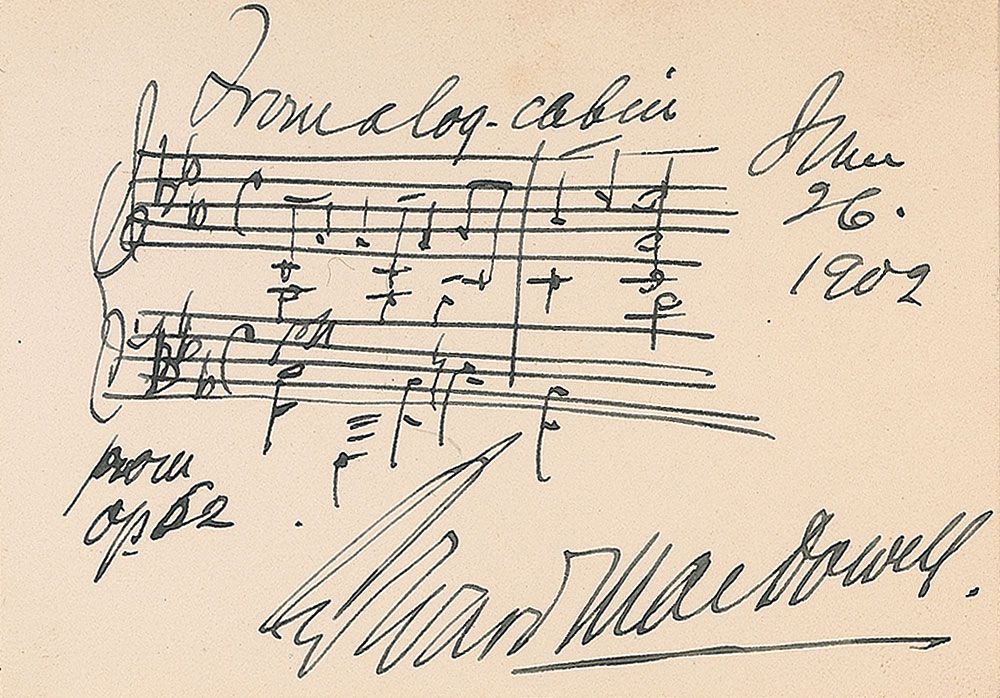 From a log-cabin
June
26.
1902
from
op 62
Edward MacDowell.